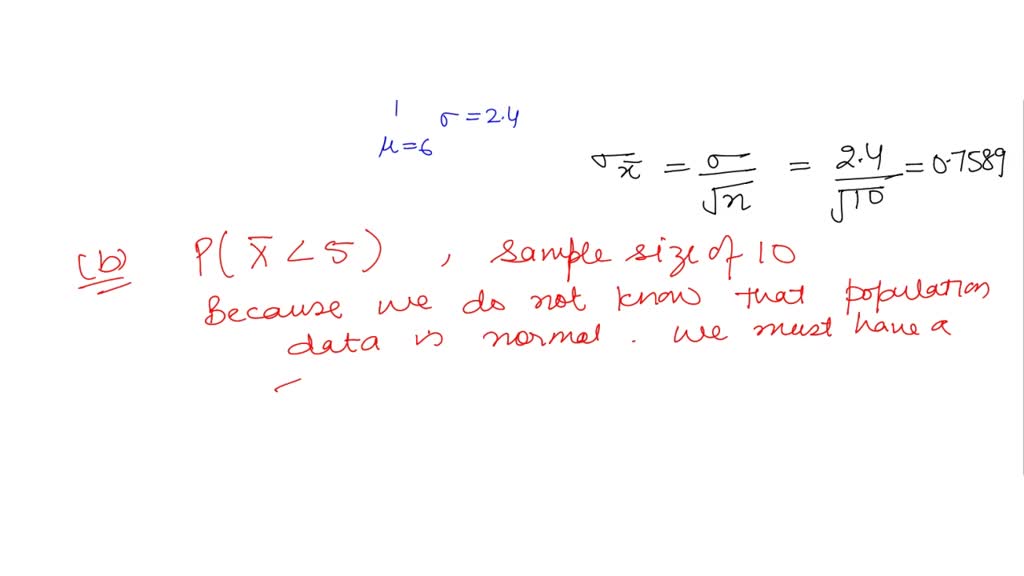 1
σ = 2.4
μ = 6
σx̄ = σ/√n = 2.4/√10 = 0.7589
(b) P( x̄ < 5 ) , sample size of 10
Because we do not know that population
data is normal. we must have a